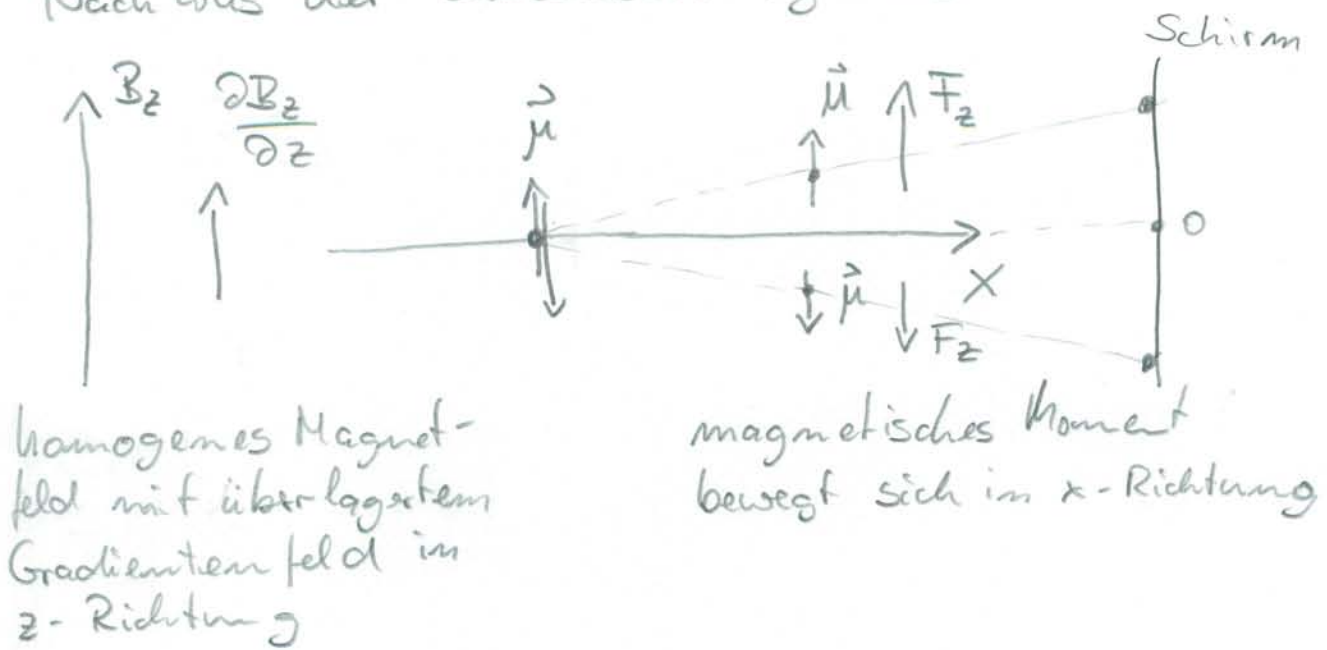 Nach
Schirm
B_z ∂B_z/∂z
μ⃗
μ⃗ F_z
0
x
μ⃗ F_z
homogenes Magnet-
feld mit überlagertem
Gradientenfeld in
z-Richtung
magnetisches Moment
bewegt sich in x-Richtung